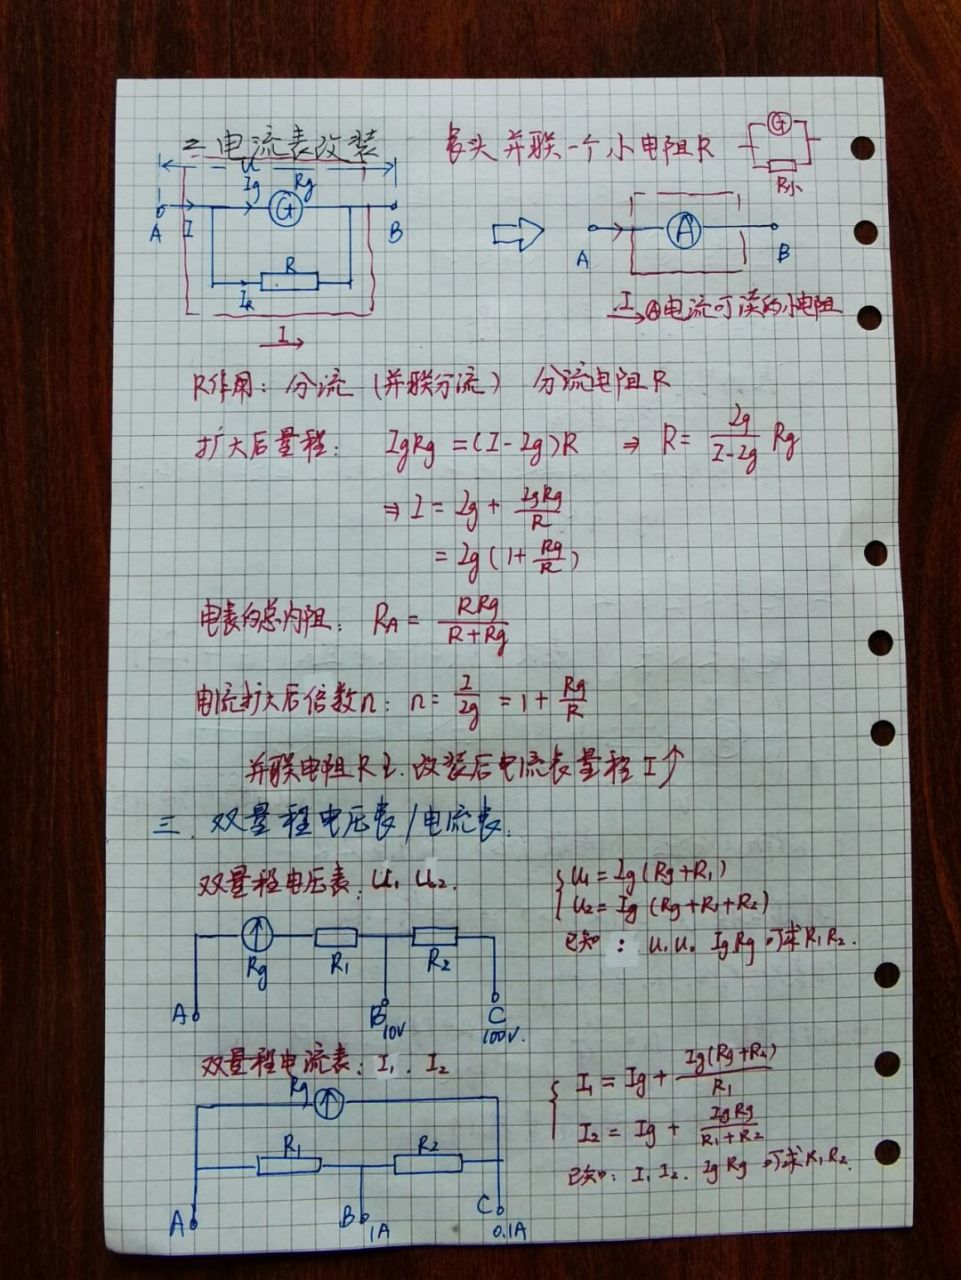 二 电流表改装
表头并联一个小电阻R
G
R小
U
Ig Rg
G
A I B
R
IR
I
A
A B
I Ⓐ电流可读的小电阻
R作用：分流（并联分流） 分流电阻R
扩大后量程： IgRg=(I-Ig)R ⇒ R= Ig/(I-Ig) Rg
⇒ I = Ig + IgRg/R
= Ig(1+Rg/R)
电表的总内阻： RA = RRg/(R+Rg)
电流扩大后倍数n： n= I/Ig = 1+ Rg/R
并联电阻R 改装后电流表量程I↑
三. 双量程电压表/电流表.
双量程电压表：U1 U2.
U1=Ig(Rg+R1)
U2=Ig(Rg+R1+R2)
已知： U1 U2 IgRg 可求R1R2.
Rg R1 R2
A B 10V C 100V.
双量程电流表：I1. I2
I1 = Ig + Ig(Rg+R2)/R1
I2 = Ig + IgRg/(R1+R2)
已知：I1 I2. Ig Rg 可求R1R2.
Rg
R1 R2
A B 1A C 0.1A